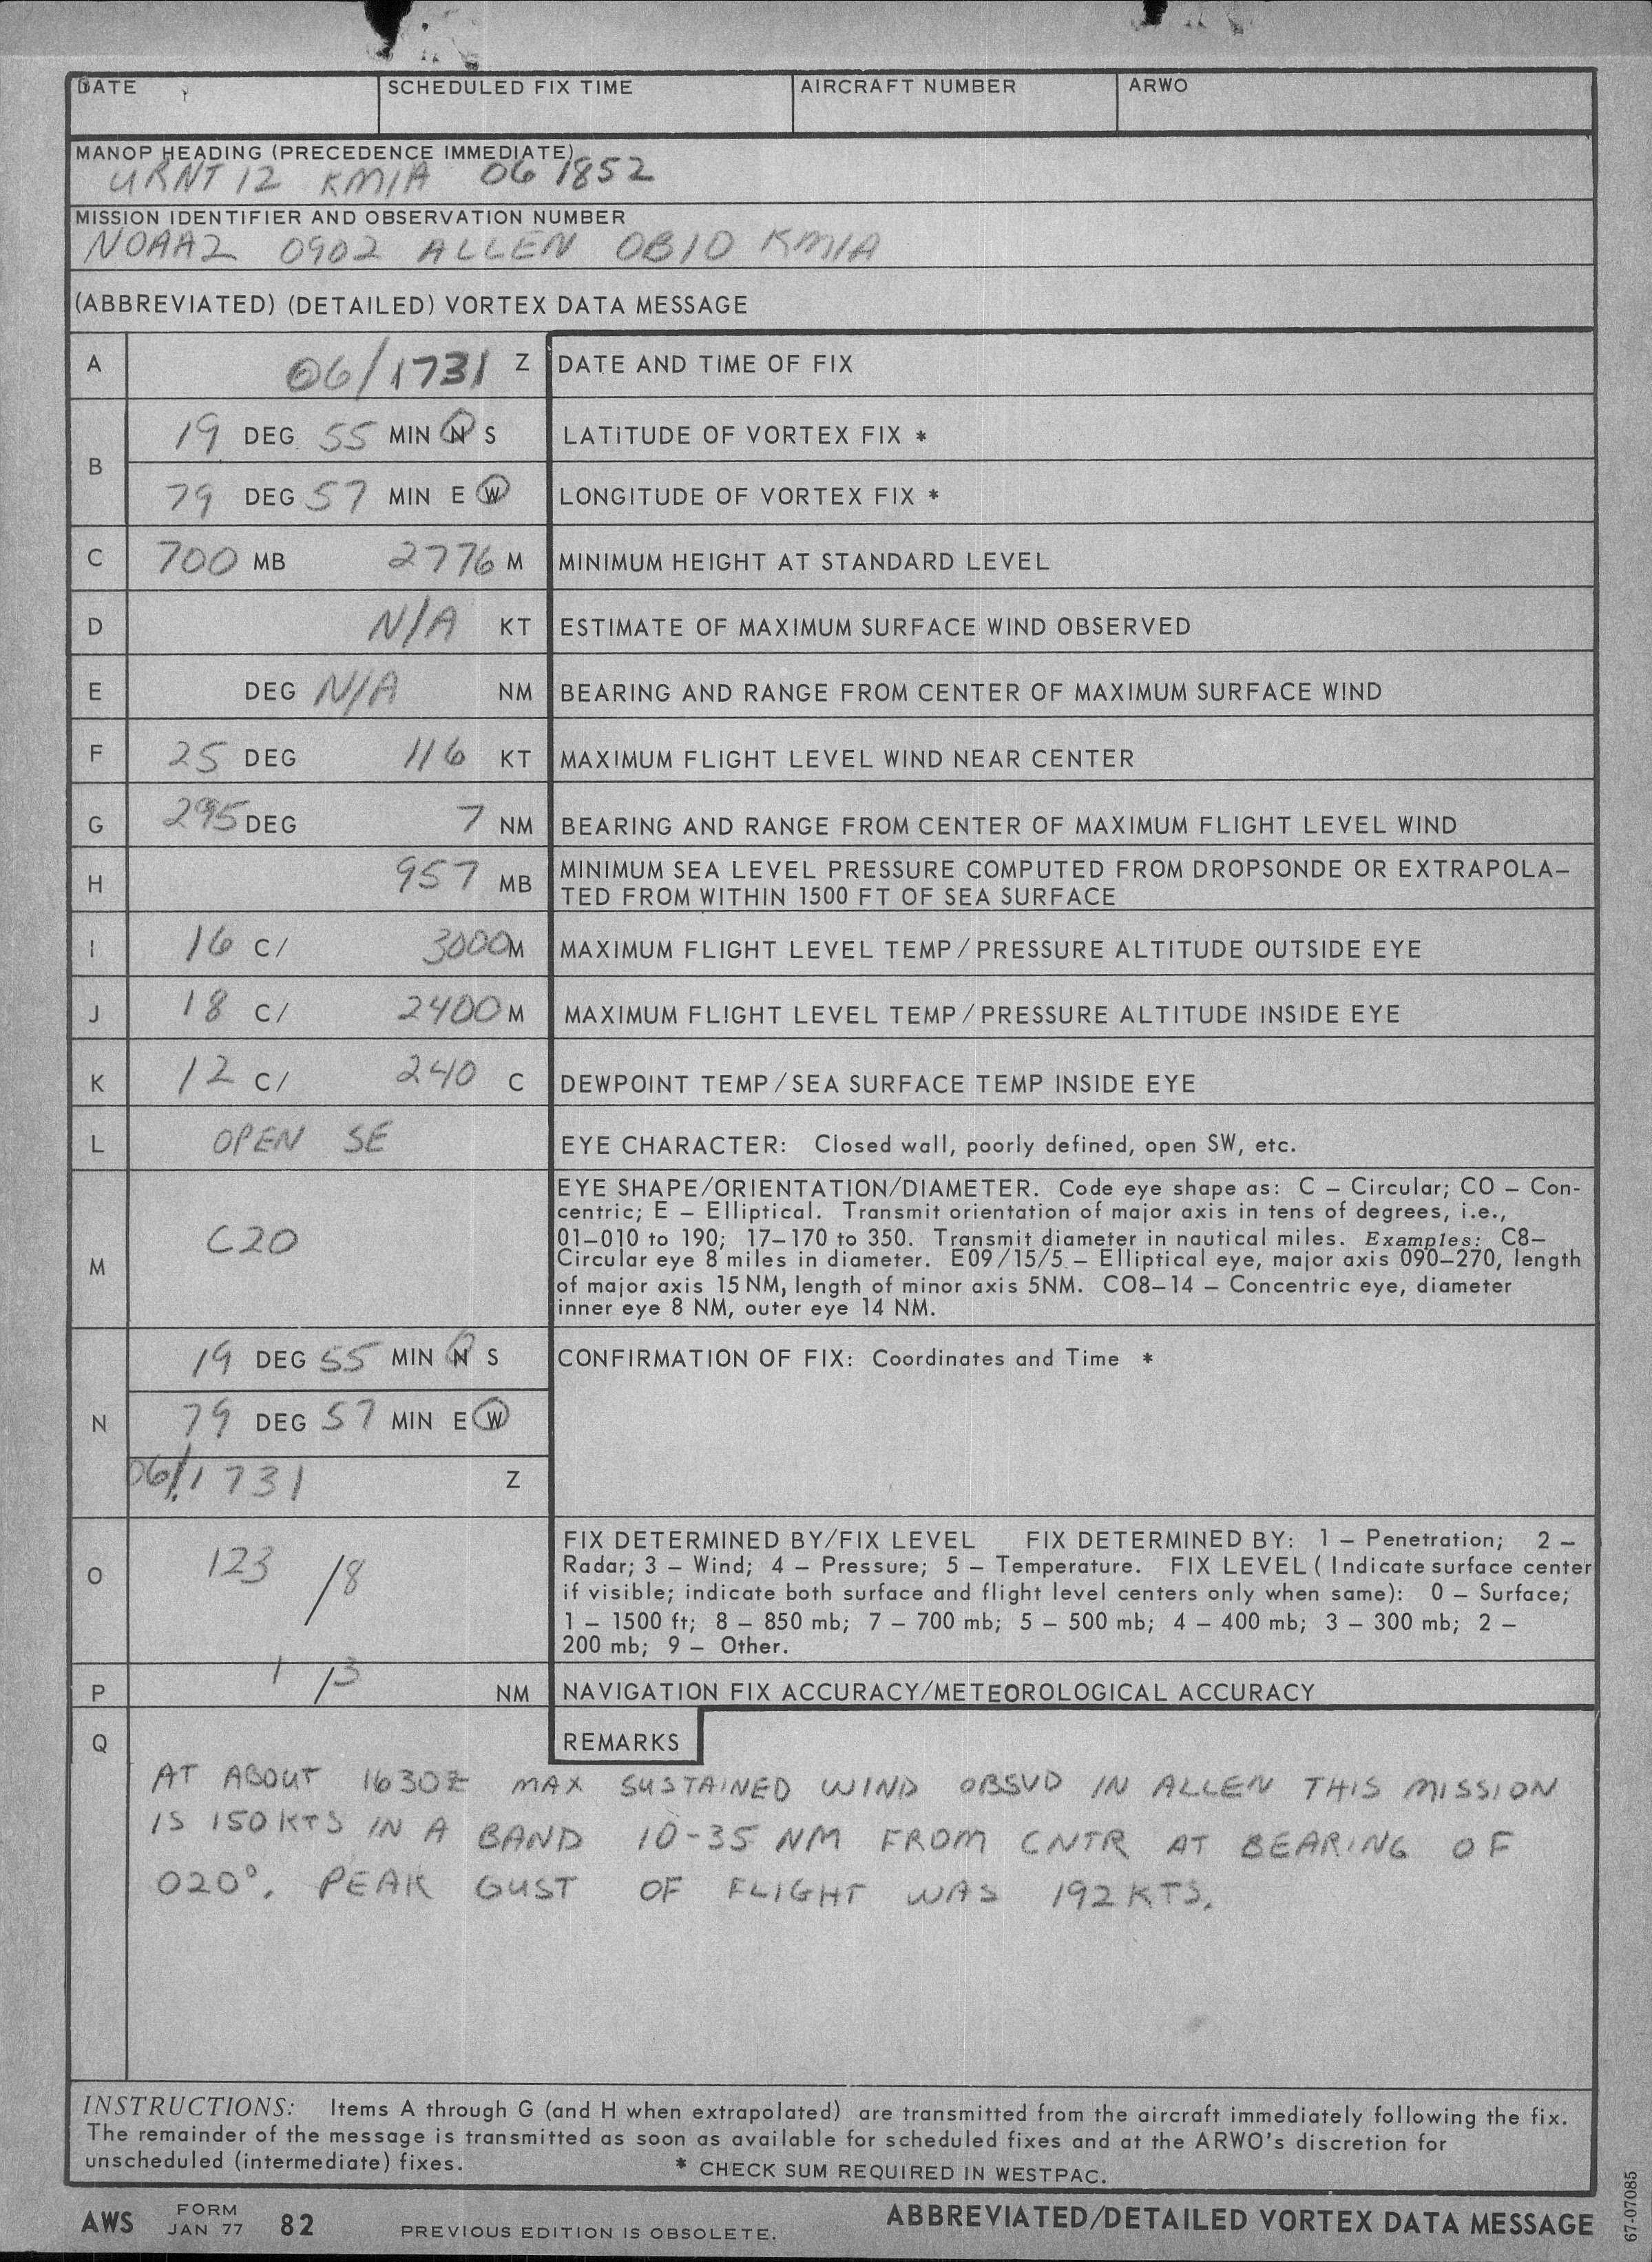 DATE SCHEDULED FIX TIME AIRCRAFT NUMBER ARWO
MANOP HEADING (PRECEDENCE IMMEDIATE)
URNT 12 KMIA 06 1852
MISSION IDENTIFIER AND OBSERVATION NUMBER
NOAA2 0902 ALLEN OB10 KMIA
(ABBREVIATED) (DETAILED) VORTEX DATA MESSAGE
A 06/1731 Z DATE AND TIME OF FIX
B
19 DEG. 55 MIN N S LATITUDE OF VORTEX FIX *
79 DEG 57 MIN E W LONGITUDE OF VORTEX FIX *
C 700 MB 2776 M MINIMUM HEIGHT AT STANDARD LEVEL
D N/A KT ESTIMATE OF MAXIMUM SURFACE WIND OBSERVED
E DEG N/A NM BEARING AND RANGE FROM CENTER OF MAXIMUM SURFACE WIND
F 25 DEG 116 KT MAXIMUM FLIGHT LEVEL WIND NEAR CENTER
G 295 DEG 7 NM BEARING AND RANGE FROM CENTER OF MAXIMUM FLIGHT LEVEL WIND
H 957 MB MINIMUM SEA LEVEL PRESSURE COMPUTED FROM DROPSONDE OR EXTRAPOLA-
TED FROM WITHIN 1500 FT OF SEA SURFACE
I 16 C/ 3000 M MAXIMUM FLIGHT LEVEL TEMP/PRESSURE ALTITUDE OUTSIDE EYE
J 18 C/ 2400 M MAXIMUM FLIGHT LEVEL TEMP/PRESSURE ALTITUDE INSIDE EYE
K 12 C/ 240 C DEWPOINT TEMP/SEA SURFACE TEMP INSIDE EYE
L OPEN SE EYE CHARACTER: Closed wall, poorly defined, open SW, etc.
M C20 EYE SHAPE/ORIENTATION/DIAMETER. Code eye shape as: C – Circular; CO – Con-
centric; E – Elliptical. Transmit orientation of major axis in tens of degrees, i.e.,
01–010 to 190; 17–170 to 350. Transmit diameter in nautical miles. Examples: C8–
Circular eye 8 miles in diameter. E09/15/5 – Elliptical eye, major axis 090–270, length
of major axis 15 NM, length of minor axis 5NM. CO8–14 – Concentric eye, diameter
inner eye 8 NM, outer eye 14 NM.
N
19 DEG 55 MIN N S CONFIRMATION OF FIX: Coordinates and Time *
79 DEG 57 MIN E W
06/1731 Z
O 123 /8 FIX DETERMINED BY/FIX LEVEL FIX DETERMINED BY: 1 – Penetration; 2 –
Radar; 3 – Wind; 4 – Pressure; 5 – Temperature. FIX LEVEL (Indicate surface center
if visible; indicate both surface and flight level centers only when same): 0 – Surface;
1 – 1500 ft; 8 – 850 mb; 7 – 700 mb; 5 – 500 mb; 4 – 400 mb; 3 – 300 mb; 2 –
200 mb; 9 – Other.
P 1 /3 NM NAVIGATION FIX ACCURACY/METEOROLOGICAL ACCURACY
Q REMARKS
AT ABOUT 1630Z MAX SUSTAINED WIND OBSVD IN ALLEN THIS MISSION
IS 150 KTS IN A BAND 10-35 NM FROM CNTR AT BEARING OF
020°. PEAK GUST OF FLIGHT WAS 192 KTS.
INSTRUCTIONS: Items A through G (and H when extrapolated) are transmitted from the aircraft immediately following the fix.
The remainder of the message is transmitted as soon as available for scheduled fixes and at the ARWO's discretion for
unscheduled (intermediate) fixes. * CHECK SUM REQUIRED IN WESTPAC.
AWS FORM JAN 77 82 PREVIOUS EDITION IS OBSOLETE. ABBREVIATED/DETAILED VORTEX DATA MESSAGE
67-07085